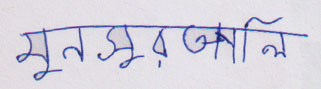 মুনসুর আলি